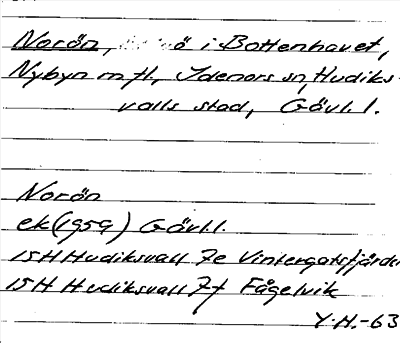 Norön, ö i Bottenhavet,
Nybyn m fl, Idenors sn, Hudiks-
valls stad, Gävl. l.
Norön
ek (1959) Gävl.l.
15H Hudiksvall 7e Vintergatsfjärde
15H Hudiksvall 7f Fågelvik
Y.H.-63